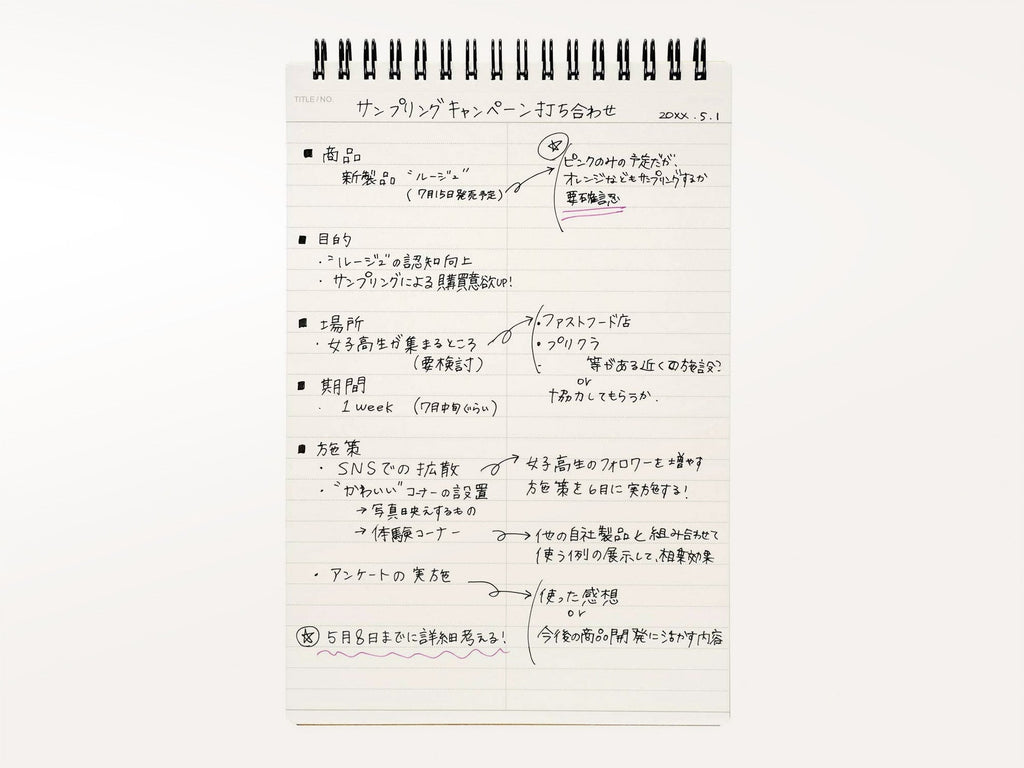 TITLE/NO.
サンプリングキャンペーン打ち合わせ
20XX.5.1
■ 商品
新製品 "ルージュ"
(7月15日発売予定)
☆
ピンクのみの予定だが、
オレンジなどもサンプリングするか
要確認
■ 目的
・"ルージュ"の認知向上
・サンプリングによる購買意欲UP!
■ 場所
・女子高生が集まるところ
(要検討)
・ファストフード店
・プリクラ
等がある近くの施設?
or
協力してもらうか.
■ 期間
・1week (7月中旬ぐらい)
■ 施策
・SNSでの拡散
女子高生のフォロワーを増やす
施策を6月に実施する!
・"かわいい"コーナーの設置
→写真映えするもの
→体験コーナー
他の自社製品と組み合わせて
使う例の展示して、相乗効果
・アンケートの実施
使った感想
or
今後の商品開発に活かす内容
☆ 5月8日までに詳細考える!